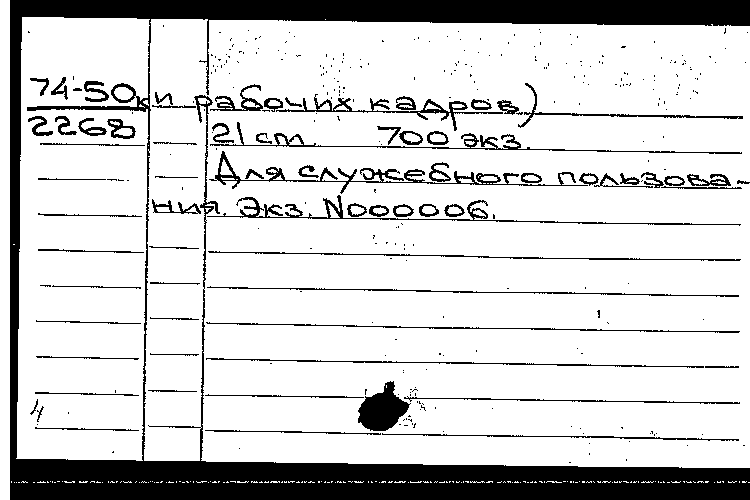 74-50ки рабочих кадров)
2268 21 cm. 700 экз.
Для служебного пользова-
ния. Экз. N000006.
4